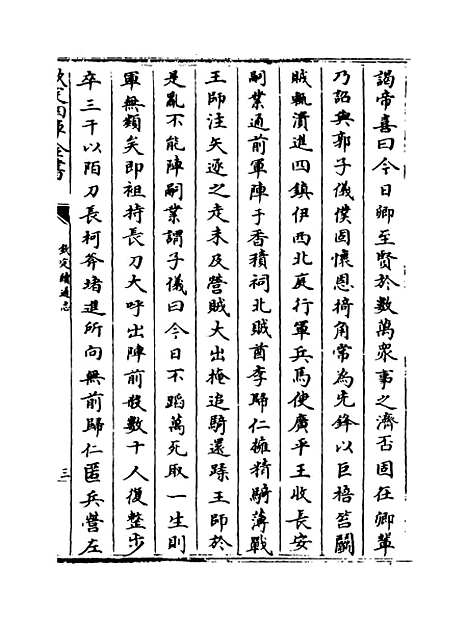 謁帝喜曰今日卿至賢於數萬衆事之濟否固在卿軰
乃詔與郭子儀僕固懷恩掎角常為先鋒以巨棓笞鬭
賊輒潰進四鎮伊西北庭行軍兵馬使廣平王收長安
嗣業通前軍陣于香積祠北賊酋李歸仁擁精騎薄戰
王師注矢逐之走未及營賊大出掩追騎還蹂王師於
是亂不能陣嗣業謂子儀曰今日不蹈萬死取一生則
軍無類矣即袒持長刀大呼出陣前殺數十人復整步
卒三千以陌刀長柯斧堵進所向無前歸仁匿兵營左
欽定四庫全書
欽定續通志
三